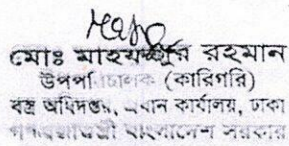 মোঃ মাহফুজুর রহমান
উপপরিচালক (কারিগরি)
বস্ত্র অধিদপ্তর, প্রধান কার্যালয়, ঢাকা
গণপ্রজাতন্ত্রী বাংলাদেশ সরকার